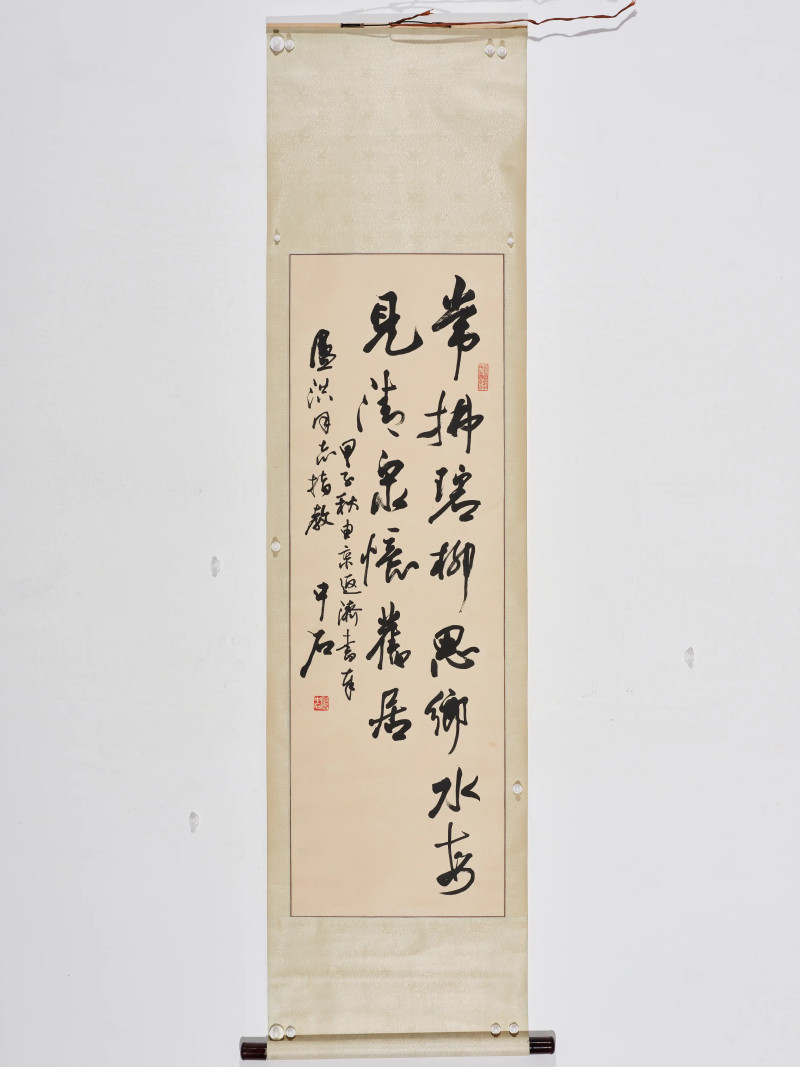 常拂碧柳思乡水每
見清泉懷舊居
甲子秋由京返濟書奉
洪同志指教
中石